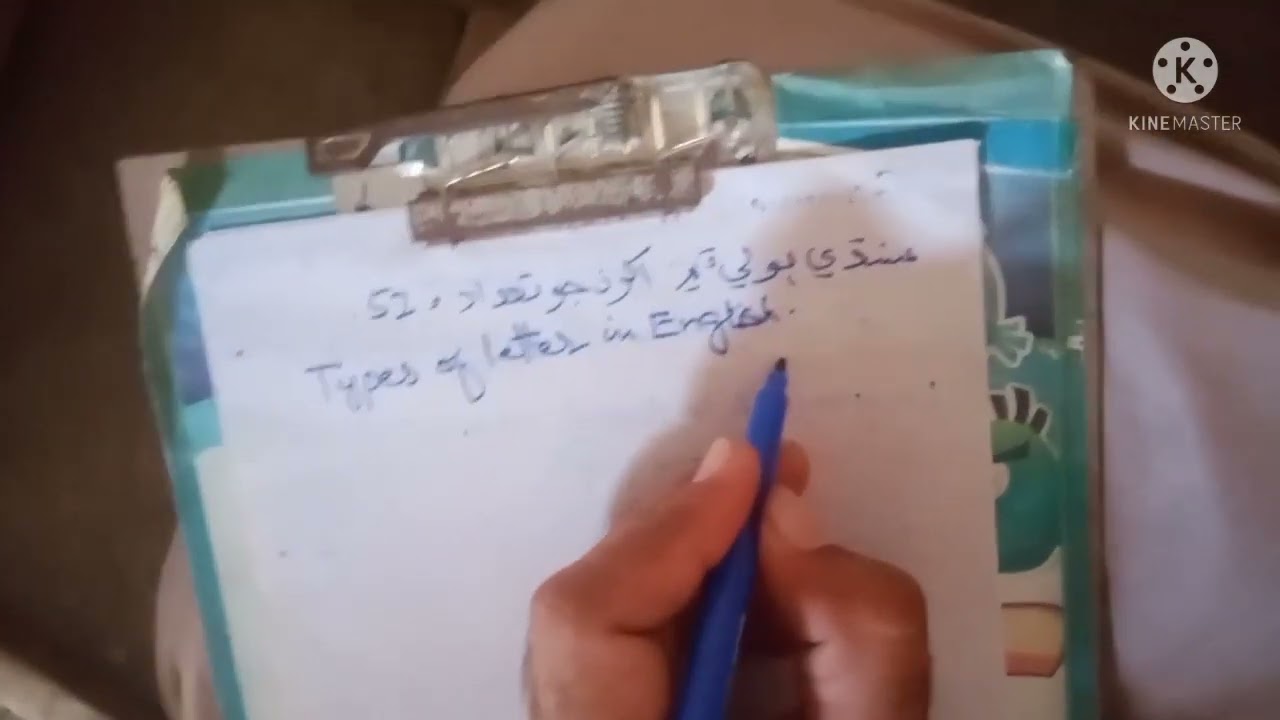 K
KINEMASTER
سنڌي ٻولي ۾ اکرن جو تعداد 52
Types of letter in English.